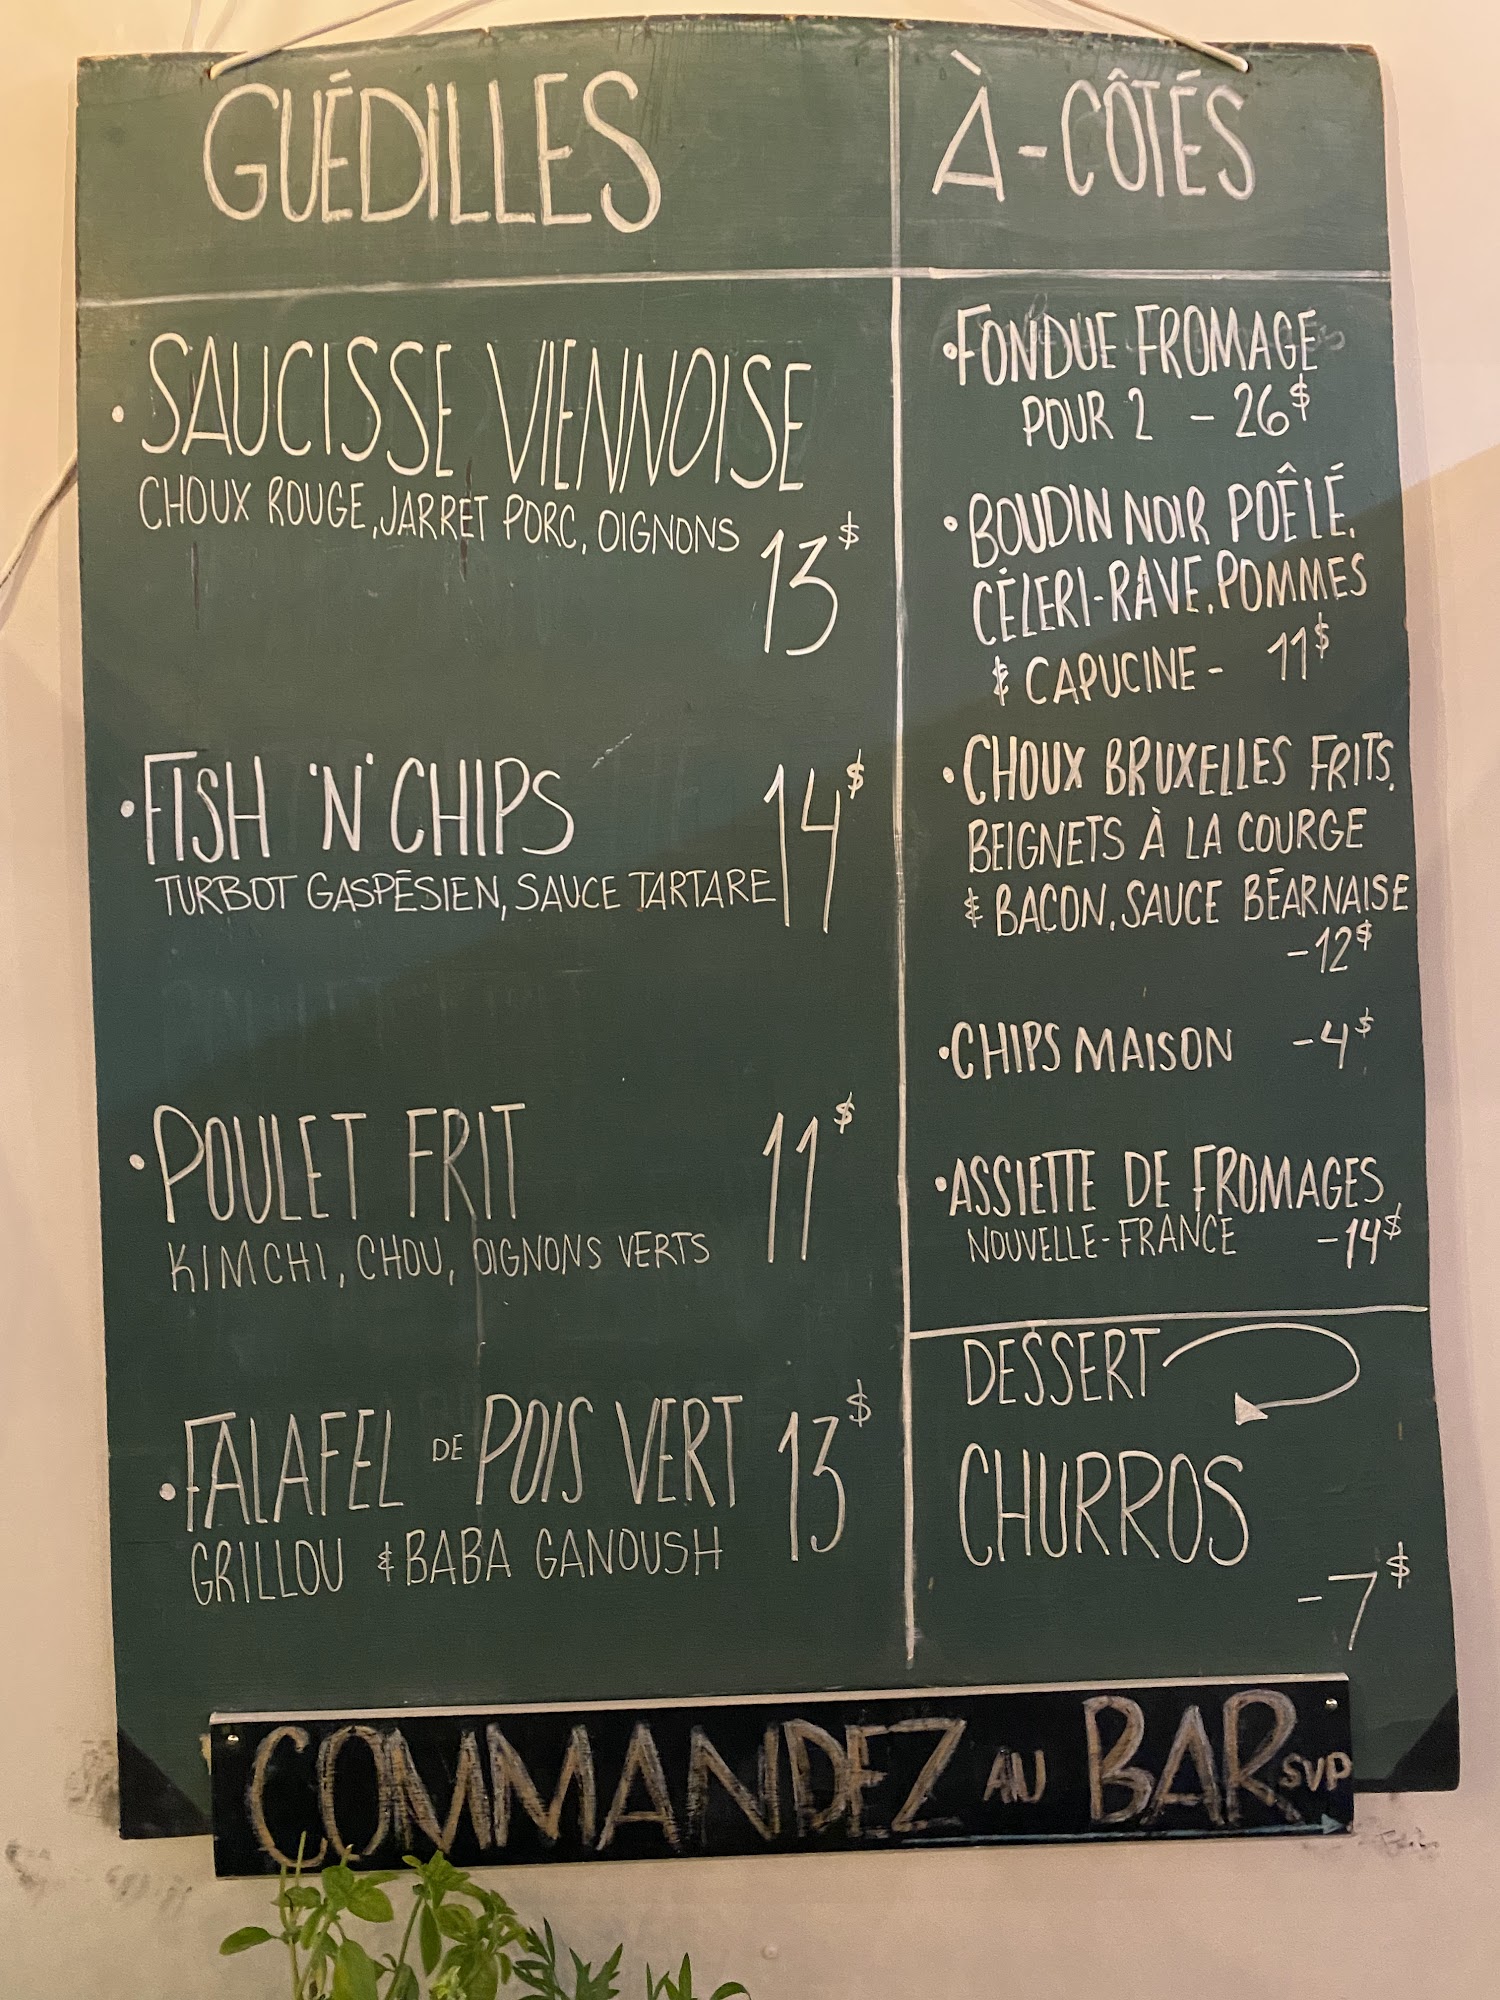 GUÉDILLES
• SAUCISSE VIENNOISE
CHOUX ROUGE, JARRET PORC, OIGNONS
13$
• FISH 'N' CHIPS 14$
TURBOT GASPÉSIEN, SAUCE TARTARE
• POULET FRIT 11$
KIMCHI, CHOU, OIGNONS VERTS
• FALAFEL DE POIS VERT 13$
GRILLOU & BABA GANOUSH
À-CÔTÉS
• FONDUE FROMAGE
POUR 2 - 26$
• BOUDIN NOIR POÊLÉ,
CÉLERI-RAVE, POMMES
& CAPUCINE - 11$
• CHOUX BRUXELLES FRITS,
BEIGNETS À LA COURGE
& BACON, SAUCE BÉARNAISE
- 12$
• CHIPS MAISON - 4$
• ASSIETTE DE FROMAGES
NOUVELLE-FRANCE - 14$
DESSERT
CHURROS
- 7$
COMMANDEZ AU BAR SVP